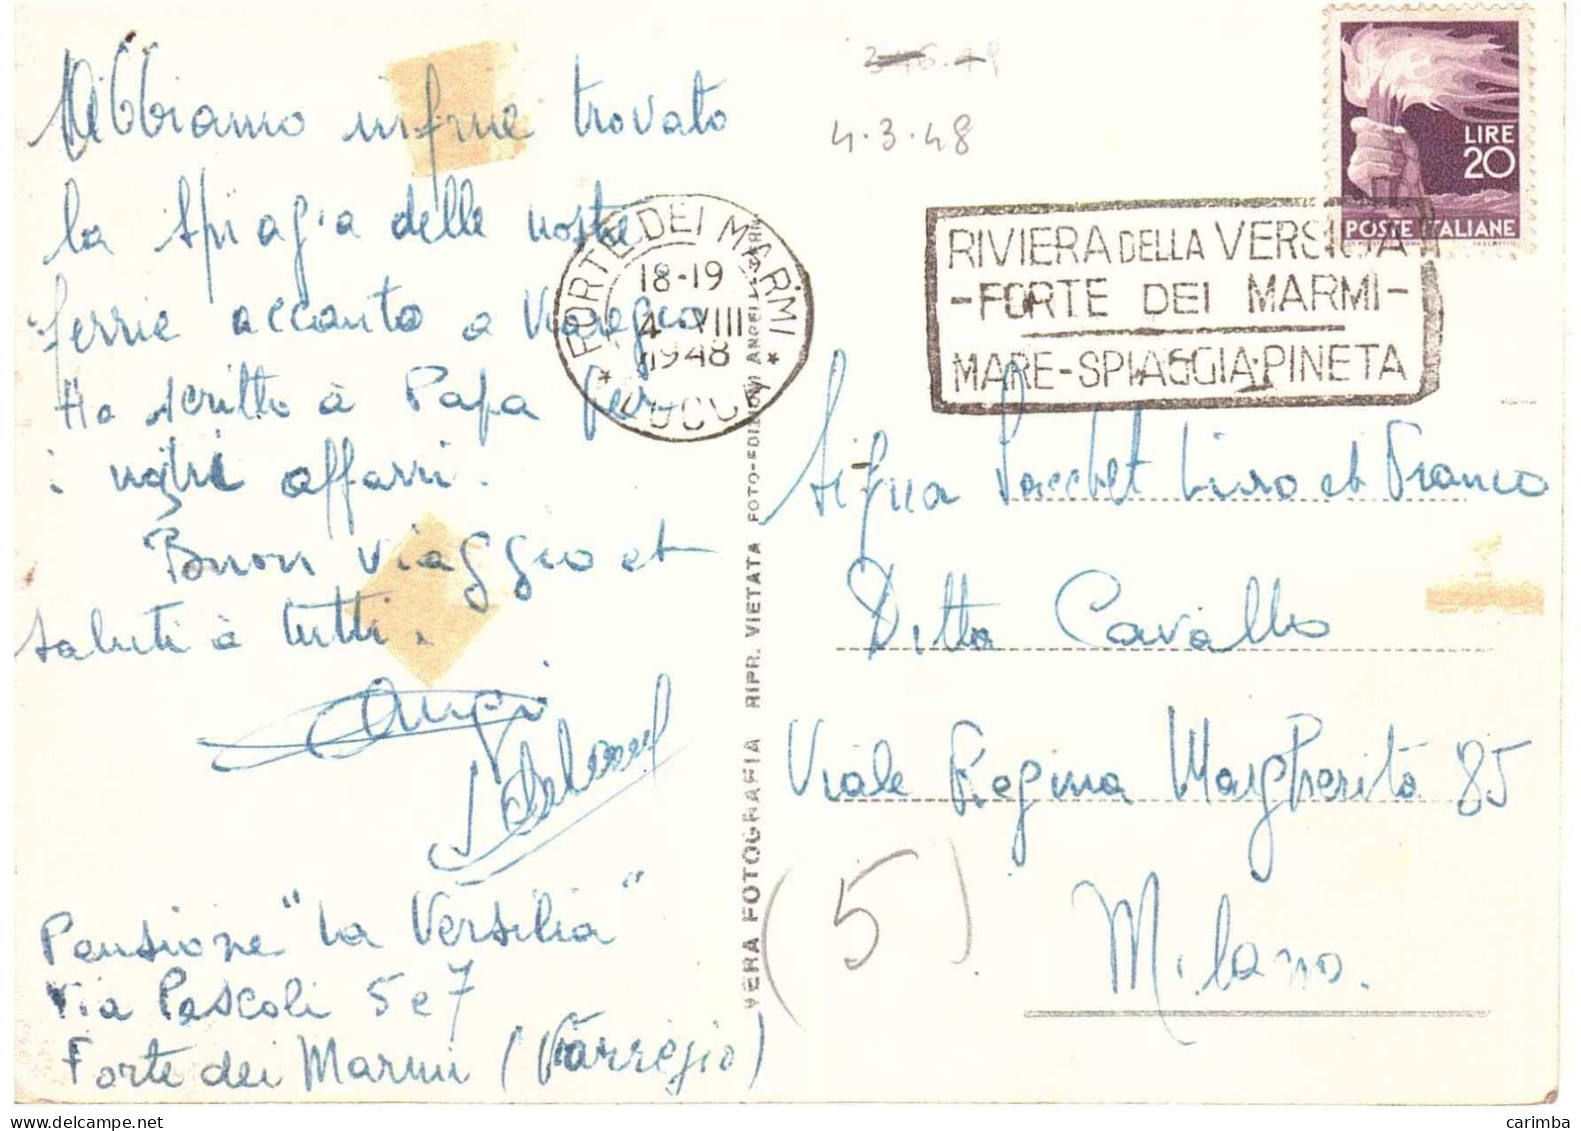 Abbiamo infine trovato
la spiagia delle nostre
ferrie accanto a Viaregio
Ho scritto à Papa per
i nostri affarri.
Buon viaggio et
saluti à tutti.
Pensione "La Versilia"
Via Pascoli 5 e 7
Forte dei Marmi (Viarregio)
VERA FOTOGRAFIA RIPR. VIETATA FOTO-EDIZIONI
3-6-49
4.3.48
FORTE DEI MARMI
18-19
4 VIII
1948
* LUCCA *
LIRE
20
POSTE ITALIANE
RIVIERA DELLA VERSILIA
-FORTE DEI MARMI-
MARE-SPIAGGIA-PINETA
Sigra Sacchet Lino et Franco
Ditta Cavallo
Viale Regina Margherita 85
Milano.
(5)
carimba